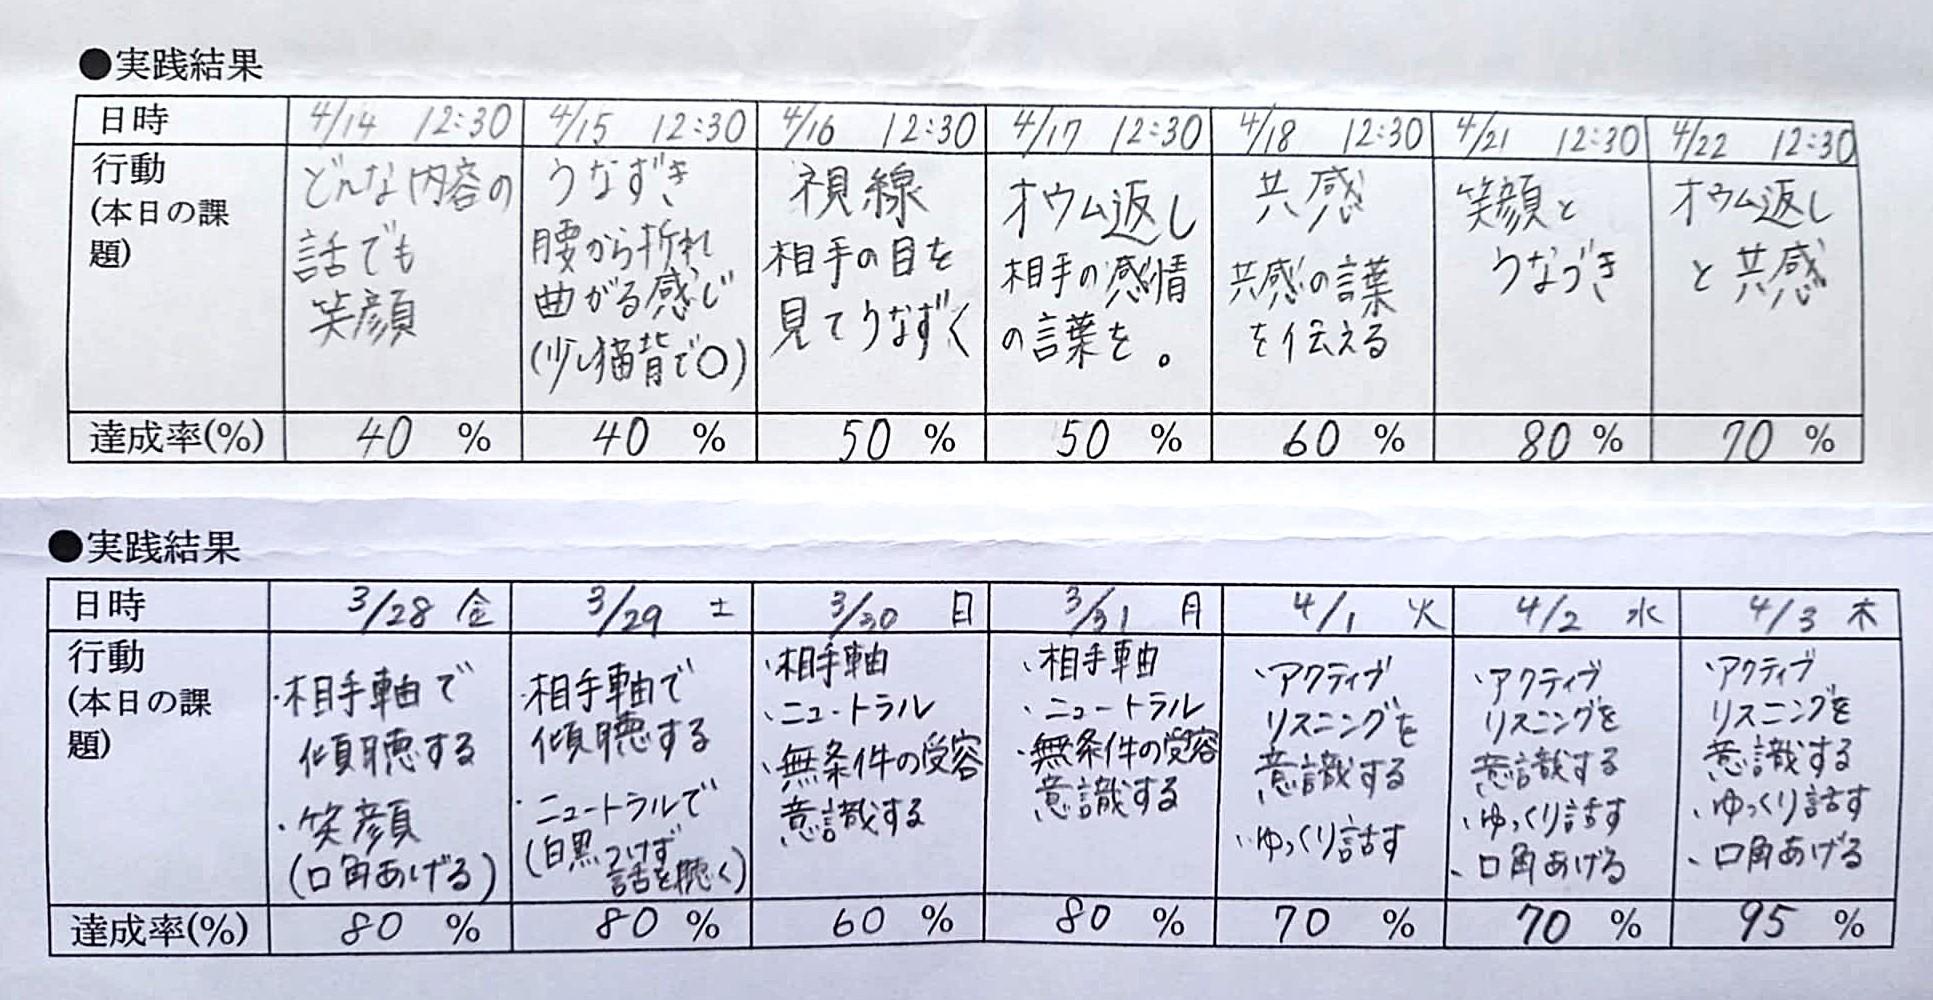 ●実践結果
日時 4/14 12:30 4/15 12:30 4/16 12:30 4/17 12:30 4/18 12:30 4/21 12:30 4/22 12:30
行動
(本日の課
題)
どんな内容の
話でも
笑顔
うなずき
腰から折れ
曲がる感じ
(少し猫背で〇)
視線
相手の目を
見てうなずく
オウム返し
相手の感情
の言葉を。
共感
共感の言葉
を伝える
笑顔と
うなづき
オウム返し
と共感
達成率(%) 40 % 40 % 50 % 50 % 60 % 80 % 70 %
●実践結果
日時 3/28 金 3/29 土 3/30 日 3/31 月 4/1 火 4/2 水 4/3 木
行動
(本日の課
題)
・相手軸で
傾聴する
・笑顔
(口角あげる)
・相手軸で
傾聴する
・ニュートラルで
(白黒つけず
話を聴く)
・相手軸
・ニュートラル
・無条件の受容
意識する
・相手軸
・ニュートラル
・無条件の受容
意識する
・アクティブ
リスニングを
意識する
・ゆっくり話す
・アクティブ
リスニングを
意識する
・ゆっくり話す
・口角あげる
・アクティブ
リスニングを
意識する
・ゆっくり話す
・口角あげる
達成率(%) 80 % 80 % 60 % 80 % 70 % 70 % 95 %